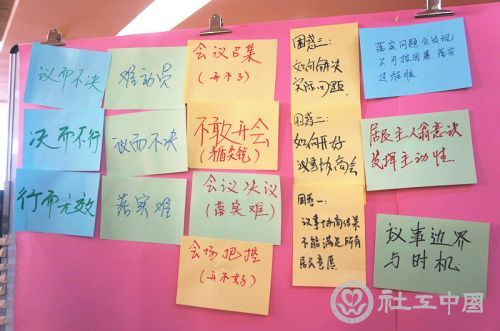 议而不决
决而不行
行而无效
难动员
议而不决
落实难
会议召集
(开不了)
不敢开会
(矛盾尖锐)
会议决议
(落实难)
会场把控
(开不好)
困惑三:
如何解决
实际问题.
困惑二:
如何开好
议事协商会
困惑一:
议事协商结果
不能满足所有
居民意愿
落实问题会出现
不可控因素落实
过程难
居民主人翁意识
发挥主动性.
议事边界
与时机
社工中國